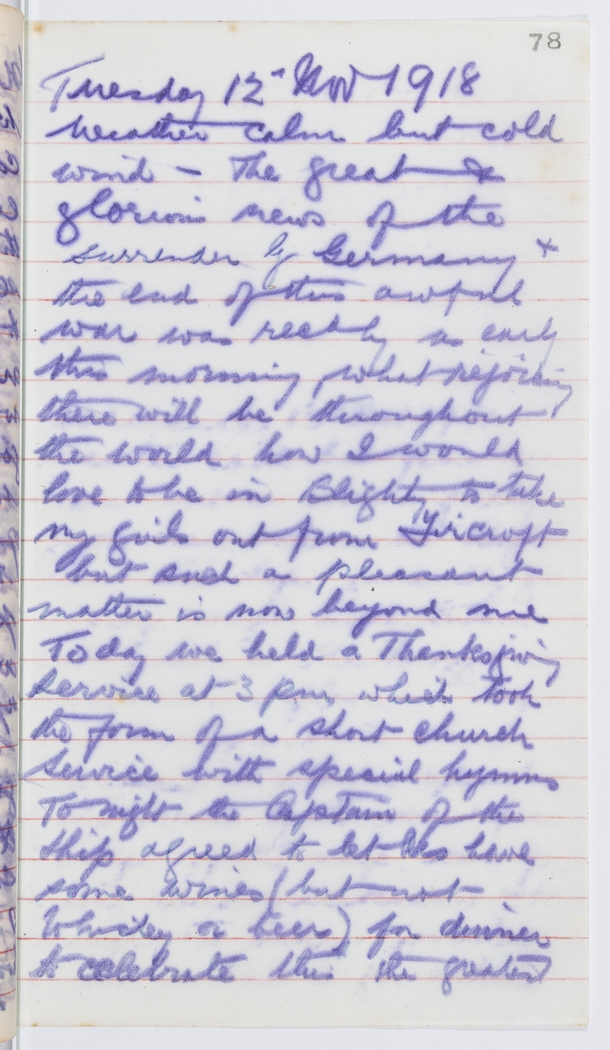 78
Tuesday 12th Nov 1918
Weather calm but cold
wind - The great &
glorious news of the
surrender by Germany &
the end of this awful
war was rec'd by us early
this morning, what rejoicing
there will be throughout
the world how I would
love to be in Blighty to take
my girls out from Fircroft
but such a pleasant
matter is now beyond me
Today we held a Thanksgiving
Service at 3 pm which took
the form of a short church
service with special hymns
To night the Captain of the
ship agreed to let us have
some wines (but not
Whiskey or beer) for dinner
to celebrate this the greatest